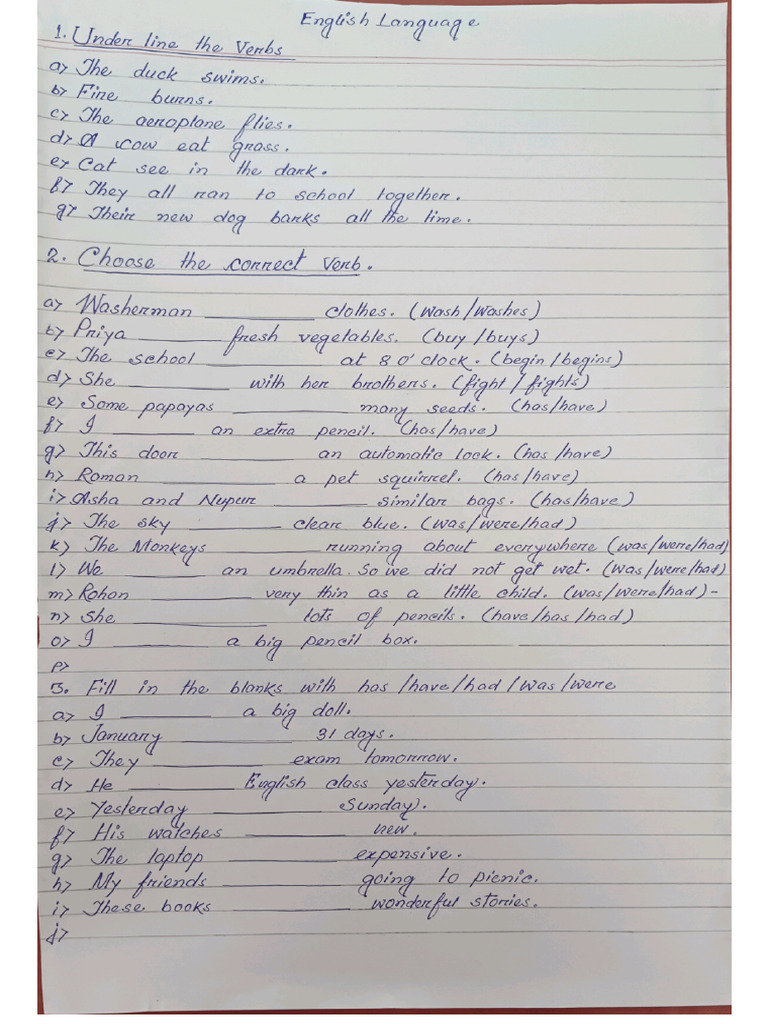 English Language
1. Under line the Verbs
a) The duck swims.
b) Fire burns.
c) The aeroplane flies.
d) A cow eat grass.
e) Cat see in the dark.
f) They all ran to school together.
g) Their new dog barks all the time.
2. Choose the correct Verb.
a) Washerman __________ clothes. (wash/washes)
b) Priya __________ fresh vegetables. (buy/buys)
c) The school __________ at 8 o'clock. (begin/begins)
d) She __________ with her brothers. (fight/fights)
e) Some papayas __________ many seeds. (has/have)
f) I __________ an extra pencil. (has/have)
g) This door __________ an automatic lock. (has/have)
h) Roman __________ a pet squirrel. (has/have)
i) Asha and Nupur __________ similar bags. (has/have)
j) The sky __________ clear blue. (was/were/had)
k) The Monkeys __________ running about everywhere (was/were/had)
l) We __________ an umbrella. So we did not get wet. (was/were/had)
m) Rohan __________ very thin as a little child. (was/were/had) -
n) She __________ lots of pencils. (have/has/had)
o) I __________ a big pencil box.
p)
3. Fill in the blanks with has/have/had/was/were
a) I __________ a big doll.
b) January __________ 31 days.
c) They __________ exam tomorrow.
d) He __________ English class yesterday.
e) Yesterday __________ Sunday).
f) His watches __________ new.
g) The laptop __________ expensive.
h) My friends __________ going to picnic.
i) These books __________ wonderful stories.
j)